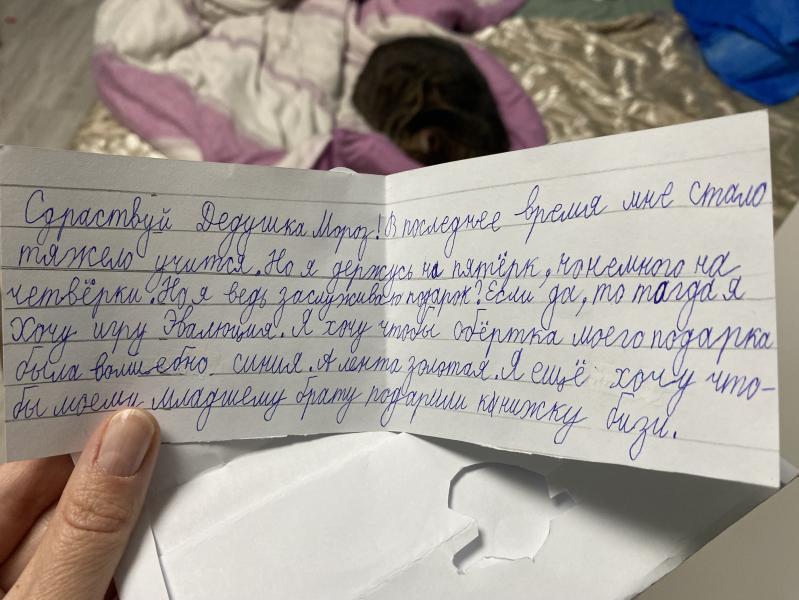 Сдраствуй Дедушка Мороз! В последнее время мне стало
тяжело учится. Но я держусь на пятёрк, но немного на
четвёрки. Но я ведь заслуживаю подарок? Если да, то тагда я
Хочу игру Эвалюция. Я хочу чтобы обёртка моего подарка
была волшебно синия. А лента золотая. Я ещё хочу что-
бы моему младшему брату подарили книжку бизи.